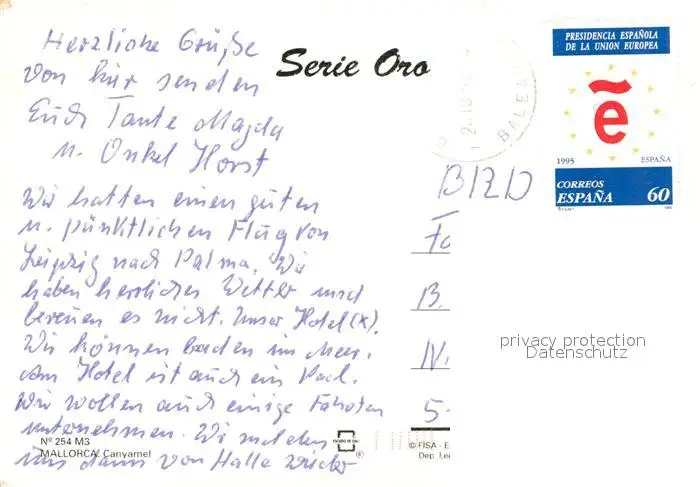 Herzliche Grüße
von hier senden
Euch Tante Magda
u. Onkel Horst
Wir hatten einen guten
u. pünktlichen Flug von
Leipzig nach Palma. Wir
haben herrliches Wetter und
bereuen es nicht. Unser Hotel (x).
Wir können baden im Meer.
Am Hotel ist auch ein Pool.
Wir wollen auch einige Fahrten
unternehmen. Wir melden
uns dann von Halle wieder
Nº 254 M3
MALLORCA. Canyamel
Serie Oro
BALE
PRESIDENCIA ESPAÑOLA
DE LA UNION EUROPEA
e
1995 ESPAÑA
CORREOS
ESPAÑA 60
BRD
B.
N
5
privacy protection
Datenschutz
ESCUDO DE ORO
®
© FISA - E
Dep. Le